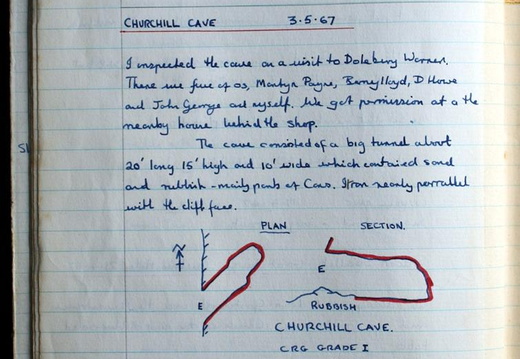 CHURCHILL CAVE 3.5.67
I inspected the cave on a visit to Dolebury Warren.
There were five of us, Martyn Payne, Barry lloyd, D Howe
and John George and myself. We got permission at a the
nearby house behind the shop.
The cave consisted of a big tunnel about
20' long 15' high and 10' wide which contained sand
and rubbish - mainly parts of Cars. It ran nearly parrallel
with the cliff face.
PLAN SECTION.
N
E E
RUBBISH
CHURCHILL CAVE.
CRG GRADE I